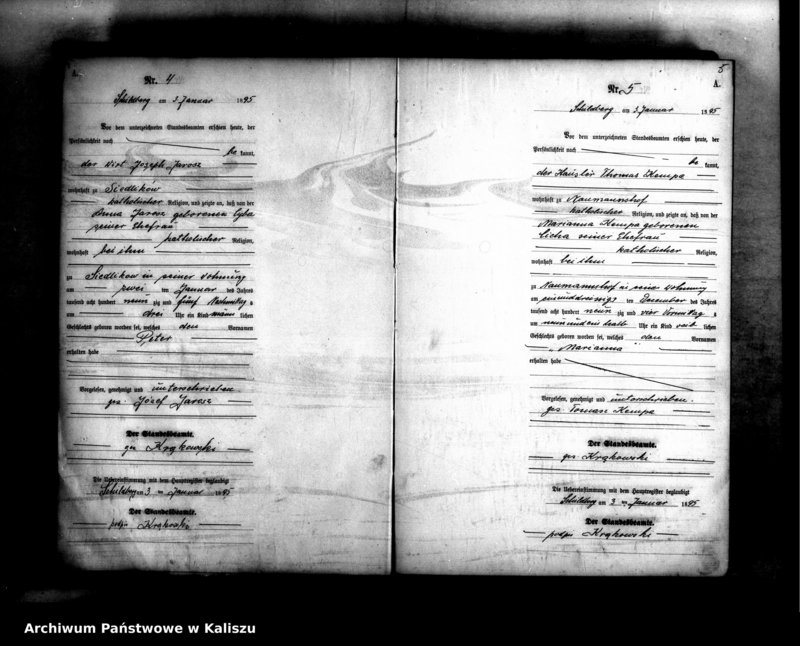 A.
Nr. 4
Schildberg am 3 Januar 1895
Vor dem unterzeichneten Standesbeamten erschien heute, der
Persönlichkeit nach
be kannt,
der Wirt Joseph Jarosz
wohnhaft zu Siedlikow
katholischer Religion, und zeigte an, daß von der
Anna Jarosz geborenen Cyba
seiner Ehefrau
katholischer Religion,
wohnhaft bei ihm
zu Siedlikow in seiner Wohnung
am zwei ten Januar des Jahres
tausend acht hundert neun zig und fünf Nachmittag s
um drei Uhr ein Kind männ lichen
Geschlechts geboren worden sei, welches den Vornamen
Peter
erhalten habe
Vorgelesen, genehmigt und unterschrieben
gez. Józef Jarosz
Der Standesbeamte.
gez Krąkowski
Die Uebereinstimmung mit dem Hauptregister beglaubigt
Schildberg am 3 ten Januar 1895
Der Standesbeamte.
podpis Krąkowski
5
A.
Nr. 5
Schildberg am 3 Januar 1895
Vor dem unterzeichneten Standesbeamten erschien heute, der
Persönlichkeit nach
be kannt,
der Häusler Thomas Kempa
wohnhaft zu Naumannshof
katholischer Religion, und zeigte an, daß von der
Marianna Kempa geborenen
Licha seiner Ehefrau
katholischer Religion,
wohnhaft bei ihm
zu Naumannshof in seine Wohnung
am einunddreißigs ten Dezember des Jahres
tausend acht hundert neun zig und vier Vormittag s
um neun und ein halb Uhr ein Kind weib lichen
Geschlechts geboren worden sei, welches den Vornamen
„Marianna"
erhalten habe
Vorgelesen, genehmigt und unterschrieben.
gez. Tomasz Kempa
Der Standesbeamte.
gez Krąkowski
Die Uebereinstimmung mit dem Hauptregister beglaubigt
Schildberg am 3 ten Januar 1895
Der Standesbeamte.
podpis Krąkowski
Archiwum Państwowe w Kaliszu